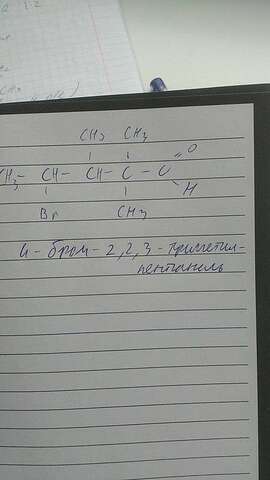 CH3 CH3
CH3 - CH - CH - C - C = O
H
Br CH3
4 - бром - 2, 2, 3 - триметил-
пентаналь